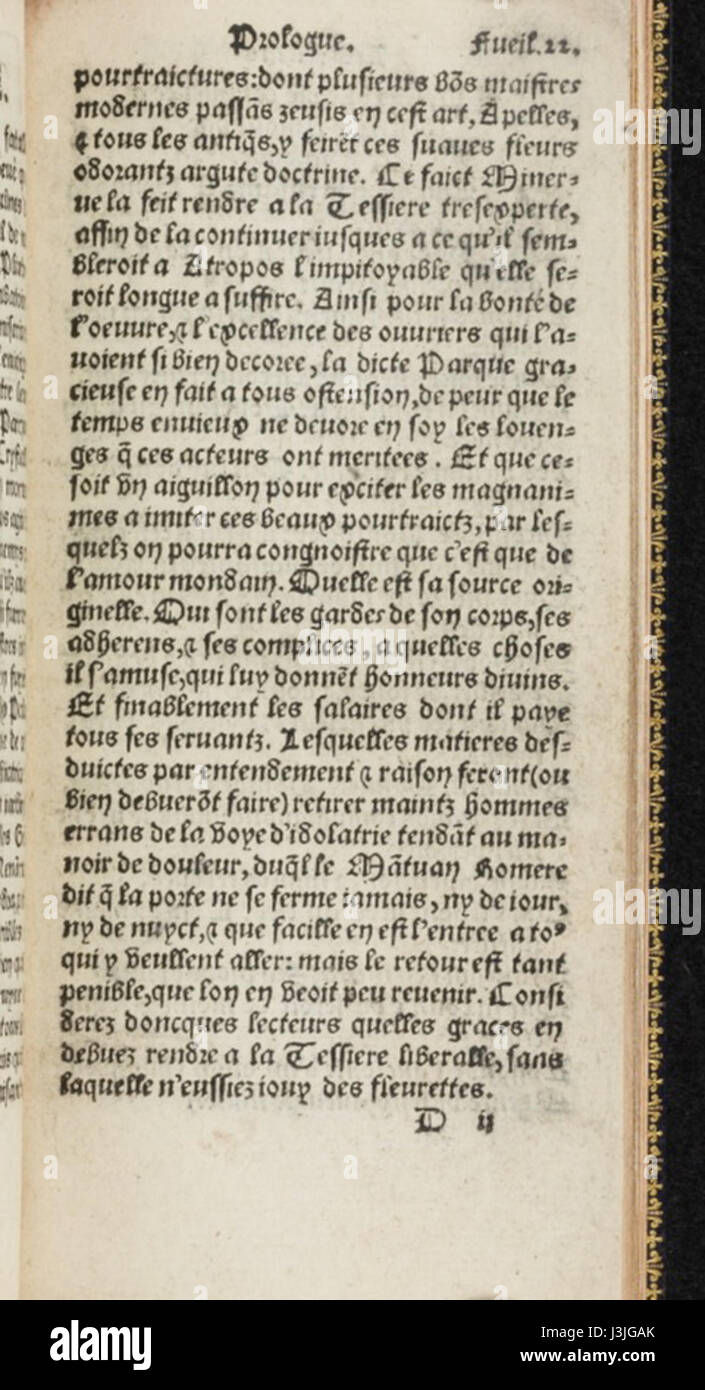 Prologue. Fueil.22.
pourtraictures:dont plusieurs bõs maistres
modernes passãs zeusis en cest art, Apelles,
⁊ tous les antiq̃s,y feirẽt ces suaues fleurs
odorantz argute doctrine. Ce faict Miner-
ue la feit rendre a la Tessiere tresexperte,
affin de la continuer iusques a ce qu'il sem-
bleroit a Atropos l'impitoyable qu'elle se-
roit longue a suffire. Ainsi pour la bonté de
l'oeuure,⁊ l'excellence des ouuriers qui l'a-
uoient si bien decoree, la dicte Parque gra-
cieuse en fait a tous ostension,de peur que le
temps enuieux ne deuore en soy les louen-
ges q̃ ces acteurs ont meritees. Et que ce-
soit vn aiguillon pour exciter les magnani-
mes a imiter ces beaux pourtraictz, par les-
quelz on pourra congnoistre que c'est que de
l'amour mondain. Quelle est sa source ori-
ginelle. Qui sont les gardes de son corps,ses
adherens,⁊ ses complices, a quelles choses
il s'amuse,qui luy donnẽt honneurs diuins.
Et finablement les salaires dont il paye
tous ses seruantz. Lesquelles matieres des-
duictes par entendement ⁊ raison feront(ou
bien debuerõt faire) retirer maintz hommes
errans de la voye d'idolatrie tendãt au ma-
noir de douleur, duq̃l le Mãtuan Homere
dit q̃ la porte ne se ferme iamais, ny de iour,
ny de nuyct,⁊ que facille en est l'entree a toꝰ
qui y veullent aller: mais le retour est tant
penible,que lon en veoit peu reuenir. Consi
derez doncques lecteurs quelles graces en
debuez rendre a la Tessiere liberalle, sans
laquelle n'eussiez iouy des fleurettes.
D ij
alamy
J3JGAK
www.alamy.com